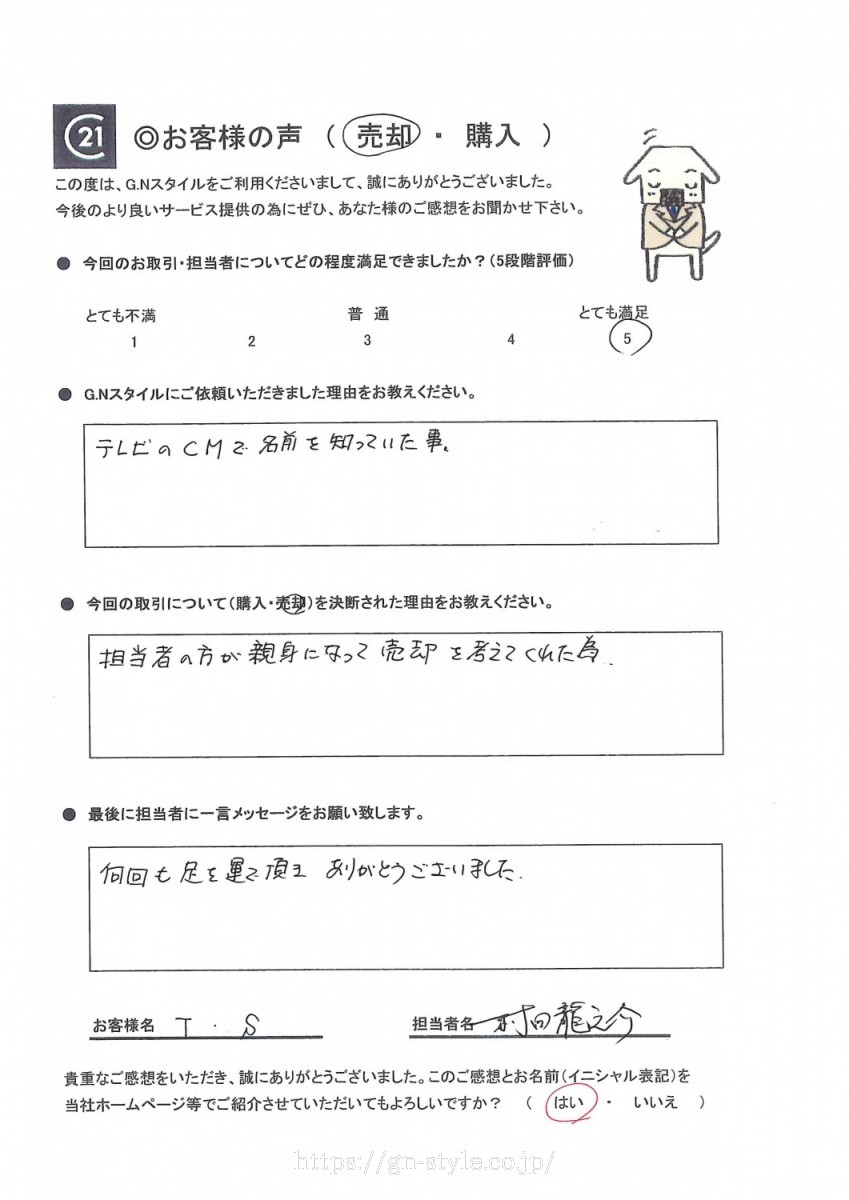 C21
◎お客様の声 ( 売却 ・ 購入 )
この度は、G.Nスタイルをご利用くださいまして、誠にありがとうございました。
今後のより良いサービス提供の為にぜひ、あなた様のご感想をお聞かせ下さい。
● 今回のお取引・担当者についてどの程度満足できましたか？(5段階評価)
とても不満 普通 とても満足
1 2 3 4 5
● G.Nスタイルにご依頼いただきました理由をお教えください。
テレビのCMで名前を知っていた事。
● 今回の取引について(購入・売却)を決断された理由をお教えください。
担当者の方が親身になって売却を考えてくれた為.
● 最後に担当者に一言メッセージをお願い致します。
何回も足を運で頂き ありがとうございました.
お客様名 T . S 担当者名 村田龍之介
貴重なご感想をいただき、誠にありがとうございました。このご感想とお名前(イニシャル表記)を
当社ホームページ等でご紹介させていただいてもよろしいですか？ ( はい ・ いいえ )
https://gn-style.co.jp/